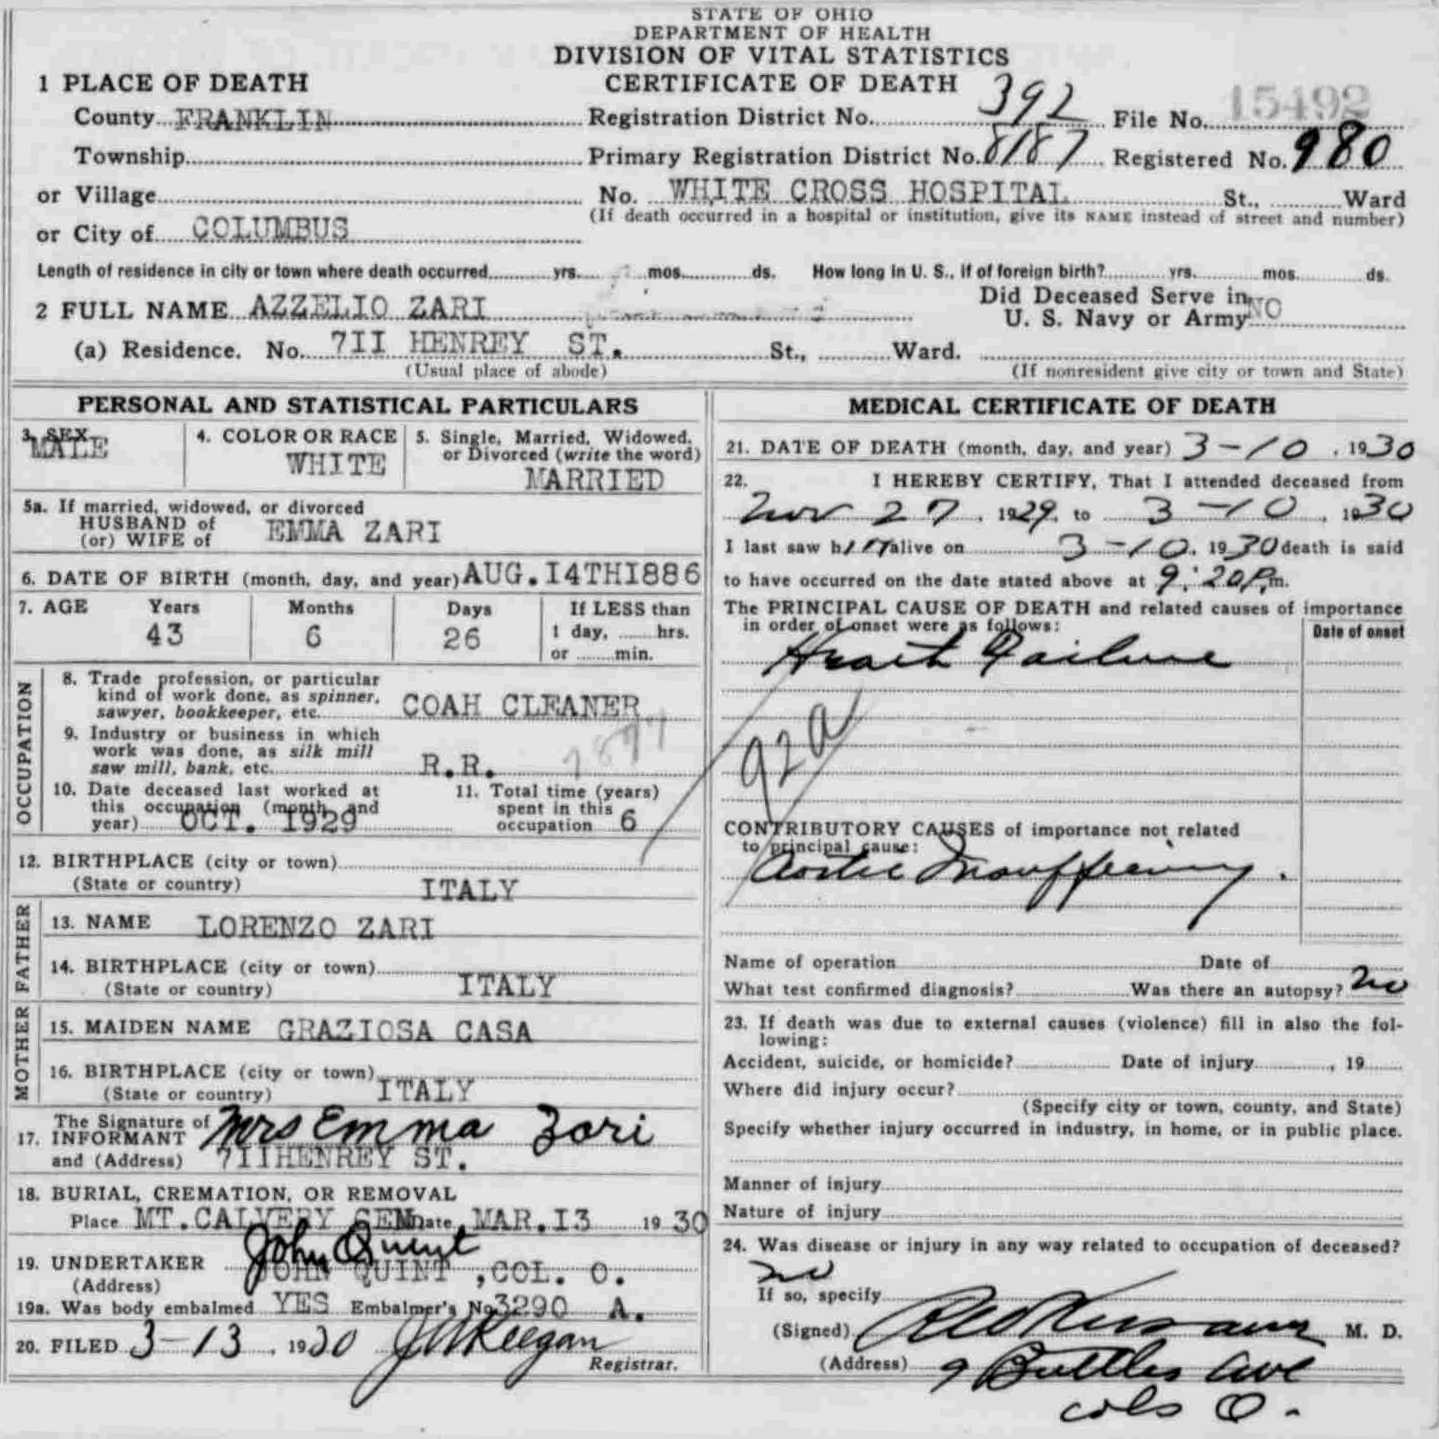 STATE OF OHIO
DEPARTMENT OF HEALTH
DIVISION OF VITAL STATISTICS
CERTIFICATE OF DEATH
1 PLACE OF DEATH
County FRANKLIN Registration District No. 392 File No. 15492
Township Primary Registration District No. 8187 Registered No. 980
or Village No. WHITE CROSS HOSPITAL St., Ward
(If death occurred in a hospital or institution, give its NAME instead of street and number)
or City of COLUMBUS
Length of residence in city or town where death occurred yrs. mos. ds. How long in U. S., if of foreign birth? yrs. mos. ds.
2 FULL NAME AZZELIO ZARI Did Deceased Serve in U. S. Navy or Army NO
(a) Residence. No. 7II HENREY ST. St., Ward.
(Usual place of abode) (If nonresident give city or town and State)
PERSONAL AND STATISTICAL PARTICULARS
3. SEX MALE
4. COLOR OR RACE WHITE
5. Single, Married, Widowed, or Divorced (write the word) MARRIED
5a. If married, widowed, or divorced
HUSBAND of
(or) WIFE of EMMA ZARI
6. DATE OF BIRTH (month, day, and year) AUG.I4THI886
7. AGE Years Months Days If LESS than
43 6 26 1 day, hrs.
or min.
OCCUPATION
8. Trade profession, or particular
kind of work done, as spinner,
sawyer, bookkeeper, etc. COAH CLEANER
9. Industry or business in which
work was done, as silk mill
saw mill, bank, etc. R.R.
10. Date deceased last worked at
this occupation (month and
year) OCT. I929
11. Total time (years)
spent in this
occupation 6
12. BIRTHPLACE (city or town)
(State or country) ITALY
FATHER
13. NAME LORENZO ZARI
14. BIRTHPLACE (city or town)
(State or country) ITALY
MOTHER
15. MAIDEN NAME GRAZIOSA CASA
16. BIRTHPLACE (city or town)
(State or country) ITALY
The Signature of
17. INFORMANT Mrs Emma Zari
and (Address) 7IIHENREY ST.
18. BURIAL, CREMATION, OR REMOVAL
Place MT.CALVERY CEM Date MAR.I3 19 30
John Quint
19. UNDERTAKER JOHN QUINT ,COL. O.
(Address)
19a. Was body embalmed YES Embalmer's No. 3290 A.
20. FILED 3-13, 1930 J W Keegan
Registrar.
MEDICAL CERTIFICATE OF DEATH
21. DATE OF DEATH (month, day, and year) 3-10, 1930
22. I HEREBY CERTIFY, That I attended deceased from
Nov 27, 1929, to 3-10, 1930
I last saw him alive on 3-10, 1930 death is said
to have occurred on the date stated above at 9:20P.m.
The PRINCIPAL CAUSE OF DEATH and related causes of importance
in order of onset were as follows: Date of onset
Heart Failure
92a
CONTRIBUTORY CAUSES of importance not related
to principal cause:
Aortic Insufficiency.
Name of operation Date of
What test confirmed diagnosis? Was there an autopsy? no
23. If death was due to external causes (violence) fill in also the fol-
lowing:
Accident, suicide, or homicide? Date of injury, 19
Where did injury occur?
(Specify city or town, county, and State)
Specify whether injury occurred in industry, in home, or in public place.
Manner of injury
Nature of injury
24. Was disease or injury in any way related to occupation of deceased?
no
If so, specify
(Signed) M. D.
(Address) 9 Buttles Ave
Cols O.